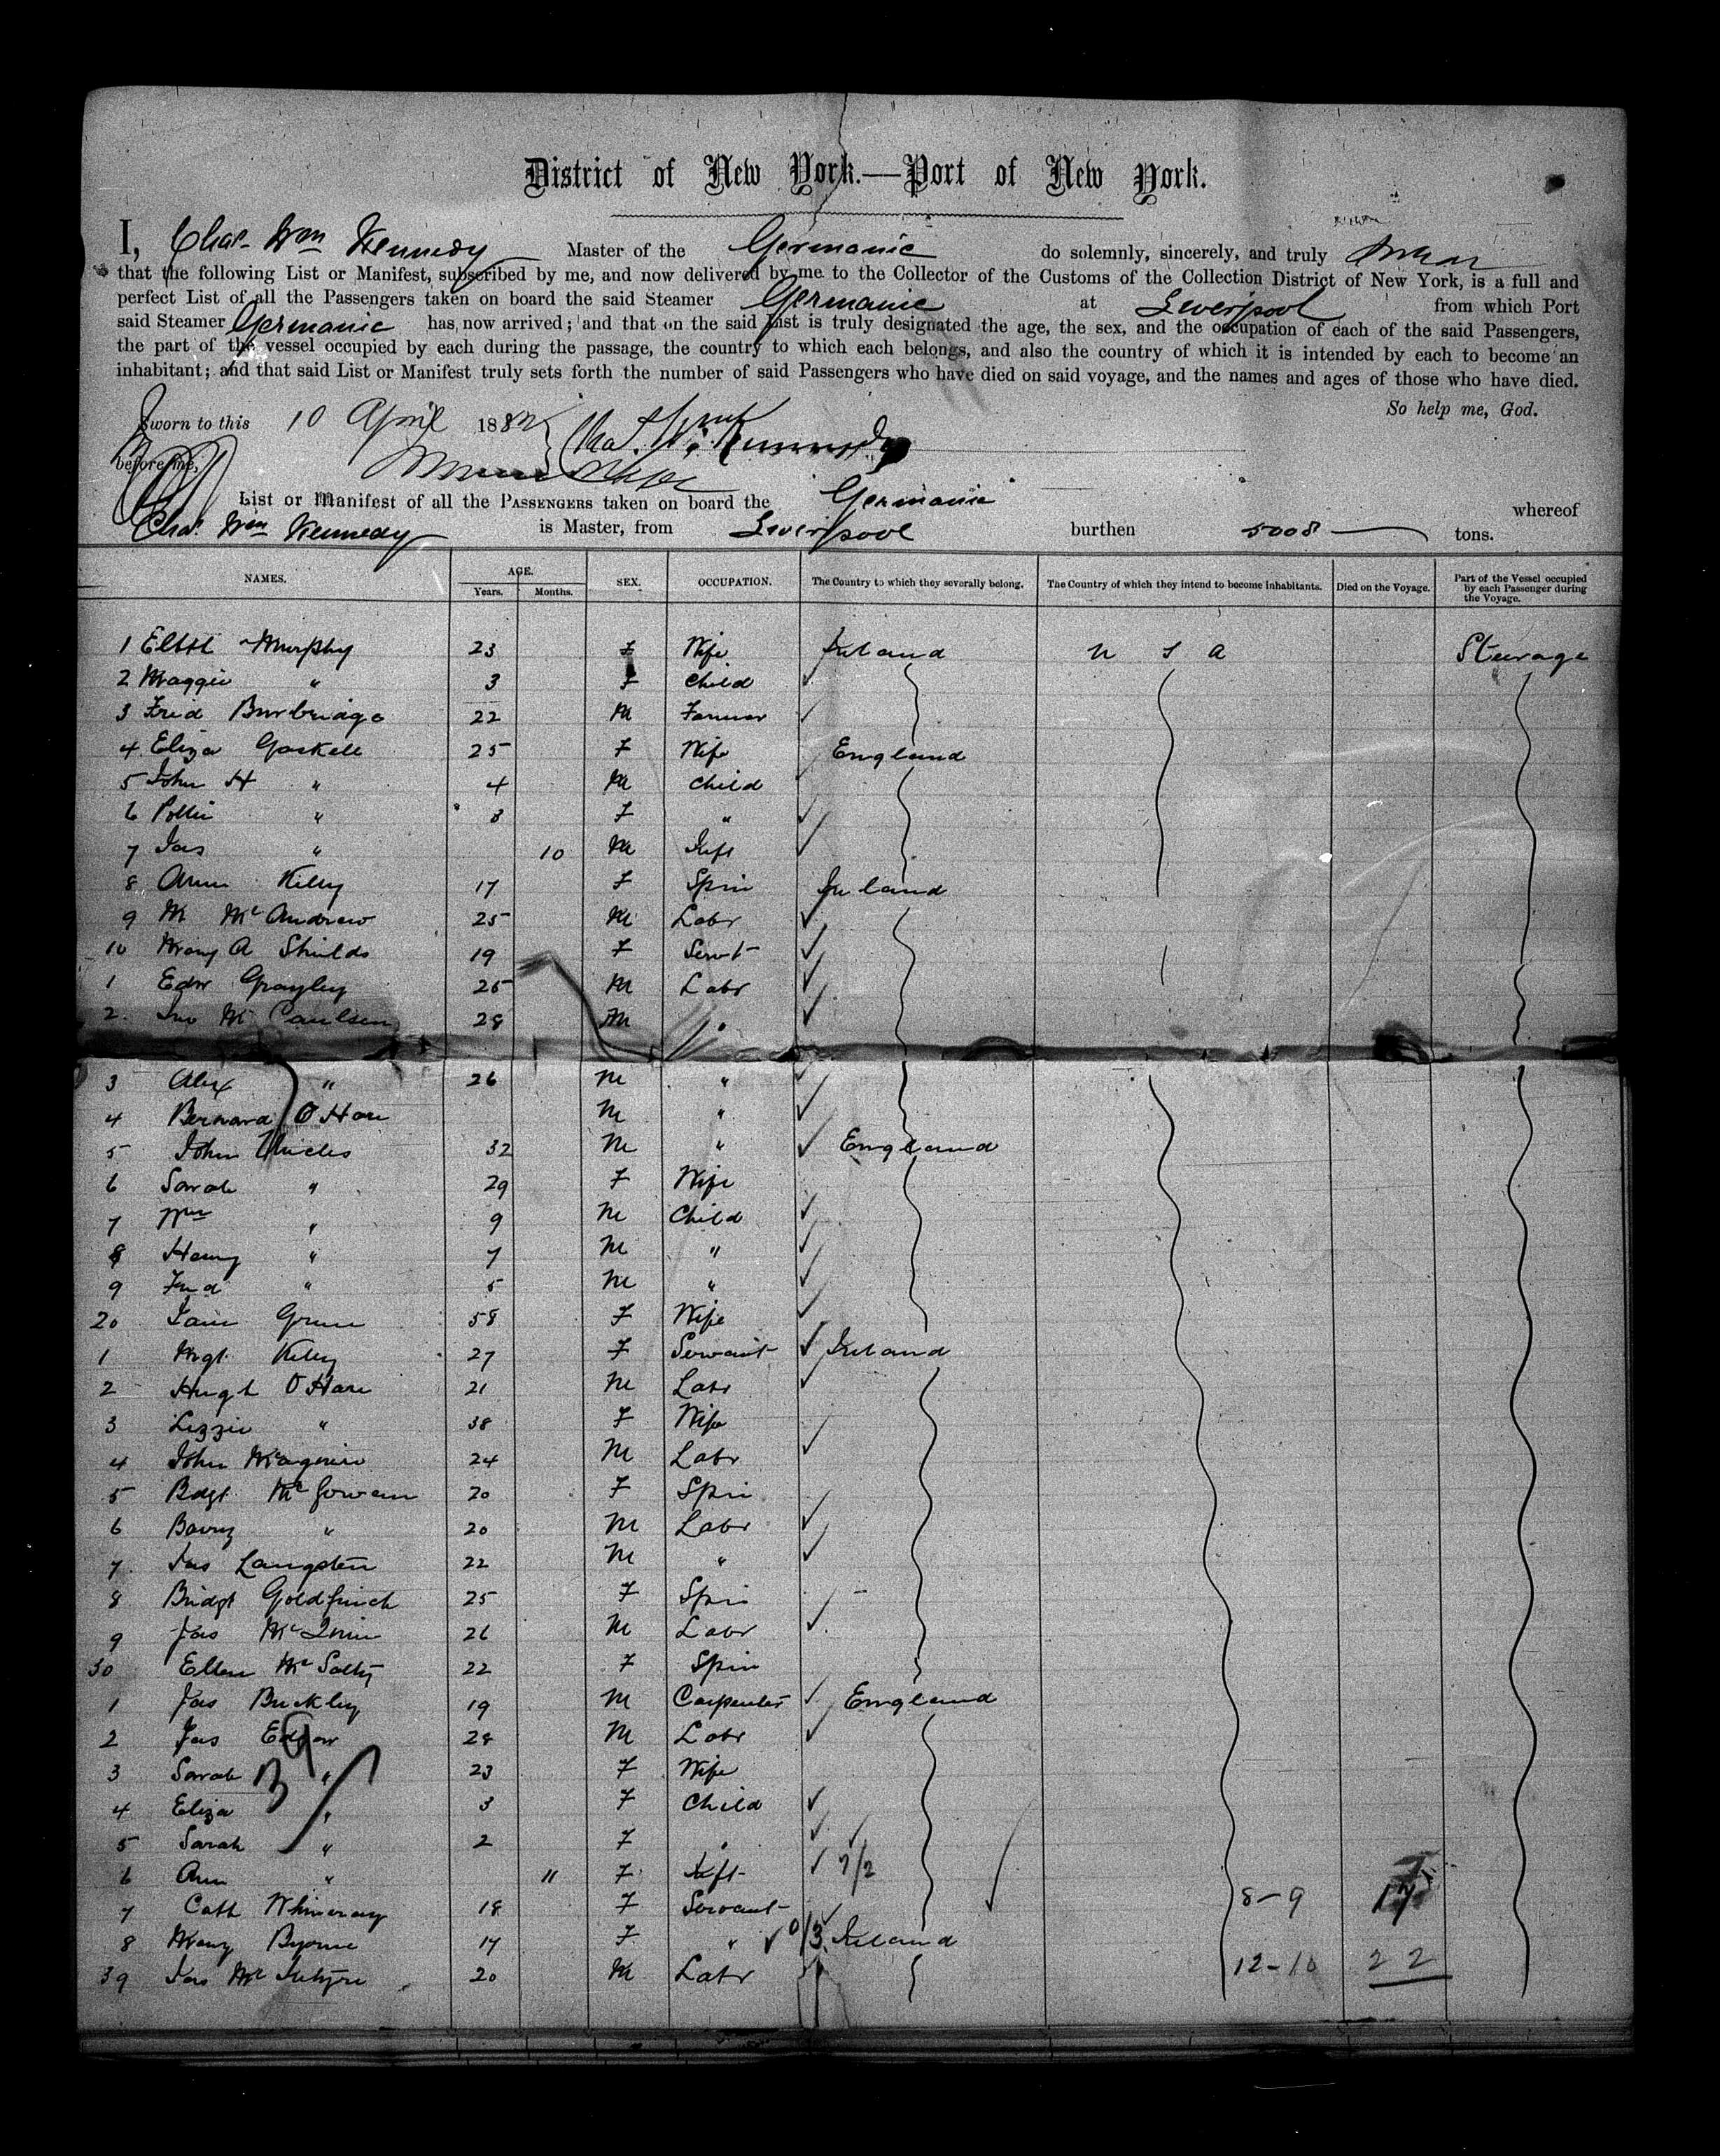 District of New York.—Port of New York.
I, Chas. Wm Kennedy Master of the Germanic do solemnly, sincerely, and truly swear
that the following List or Manifest, subscribed by me, and now delivered by me to the Collector of the Customs of the Collection District of New York, is a full and
perfect List of all the Passengers taken on board the said Steamer Germanic at Liverpool from which Port
said Steamer Germanic has now arrived; and that on the said List is truly designated the age, the sex, and the occupation of each of the said Passengers,
the part of the vessel occupied by each during the passage, the country to which each belongs, and also the country of which it is intended by each to become an
inhabitant; and that said List or Manifest truly sets forth the number of said Passengers who have died on said voyage, and the names and ages of those who have died.
So help me, God.
Sworn to this 10 April 1882 Chas. Wm Kennedy
before me,
List or Manifest of all the PASSENGERS taken on board the Germanic whereof
Chas. Wm Kennedy is Master, from Liverpool burthen 5008 tons.
NAMES. AGE. Years. Months. SEX. OCCUPATION. The Country to which they severally belong. The Country of which they intend to become inhabitants. Died on the Voyage. Part of the Vessel occupied by each Passenger during the Voyage.
1 Elith Murphy 23 F Wife Ireland U S A Steerage
2 Maggie " 3 F Child
3 Fred Burbridge 22 M Farmer
4 Eliza Gaskell 25 F Wife England
5 John H " 4 M Child
6 Pollie " 3 F "
7 Jas " 10 M Inft
8 Ann Kelly 17 F Spin Ireland
9 M McAndrew 25 M Labr
10 Mary A Shields 19 F Servt
1 Edw Grayley 25 M Labr
2 Jno McCaulsen 28 M "
3 Alex " 26 M "
4 Bernard O'Hare M "
5 John Uncles 32 M " England
6 Sarah " 29 F Wife
7 Wm " 9 M Child
8 Harry " 7 M "
9 Fred " 5 M "
20 Jane Green 58 F Wife
1 Mgt Kelly 27 F Servant Ireland
2 Hugh O'Hare 21 M Labr
3 Lizzie " 38 F Wife
4 John Maguire 24 M Labr
5 Bdgt McGowan 20 F Spin
6 Barry " 20 M Labr
7 Jas Langsten 22 M "
8 Bridgt Goldfinch 25 F Spin
9 Jas McQuin 26 M Labr
30 Ellen McSolty 22 F Spin
1 Jas Buckley 19 M Carpenter England
2 Jas Edgar 28 M Labr
3 Sarah " 23 F Wife
4 Eliza " 3 F Child
5 Sarah " 2 F "
6 Ann " 11 F Inft 7/2
7 Cath Whineray 18 F Servant 8-9 17
8 Mary Byrne 17 F " 0/3 Ireland
39 Jas McIntyre 20 M Labr 12-10 22
39